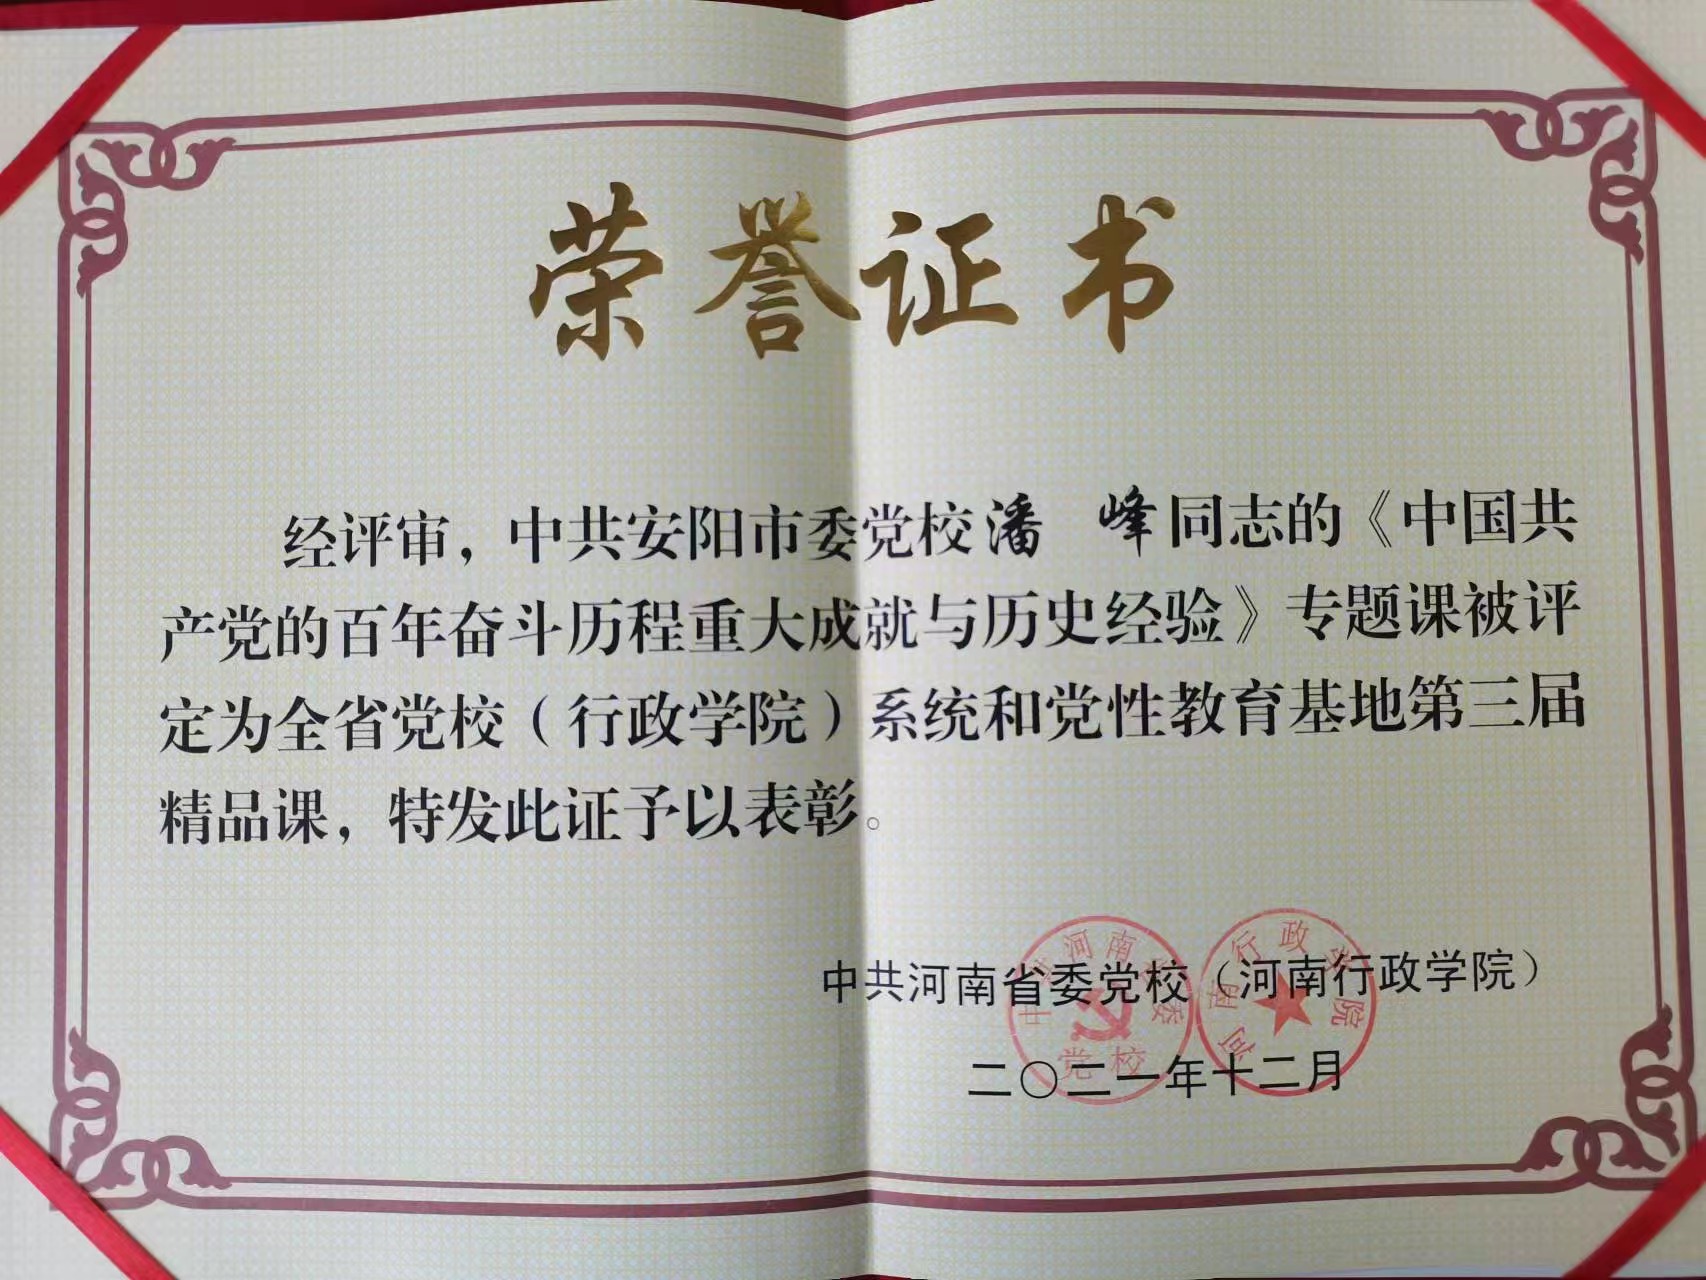 荣誉证书
经评审，中共安阳市委党校潘 峰同志的《中国共
产党的百年奋斗历程重大成就与历史经验》专题课被评
定为全省党校（行政学院）系统和党性教育基地第三届
精品课，特发此证予以表彰。
中共河南省委党校（河南行政学院）
二〇二一年十二月
中共河南省委
党校
河南行政学院